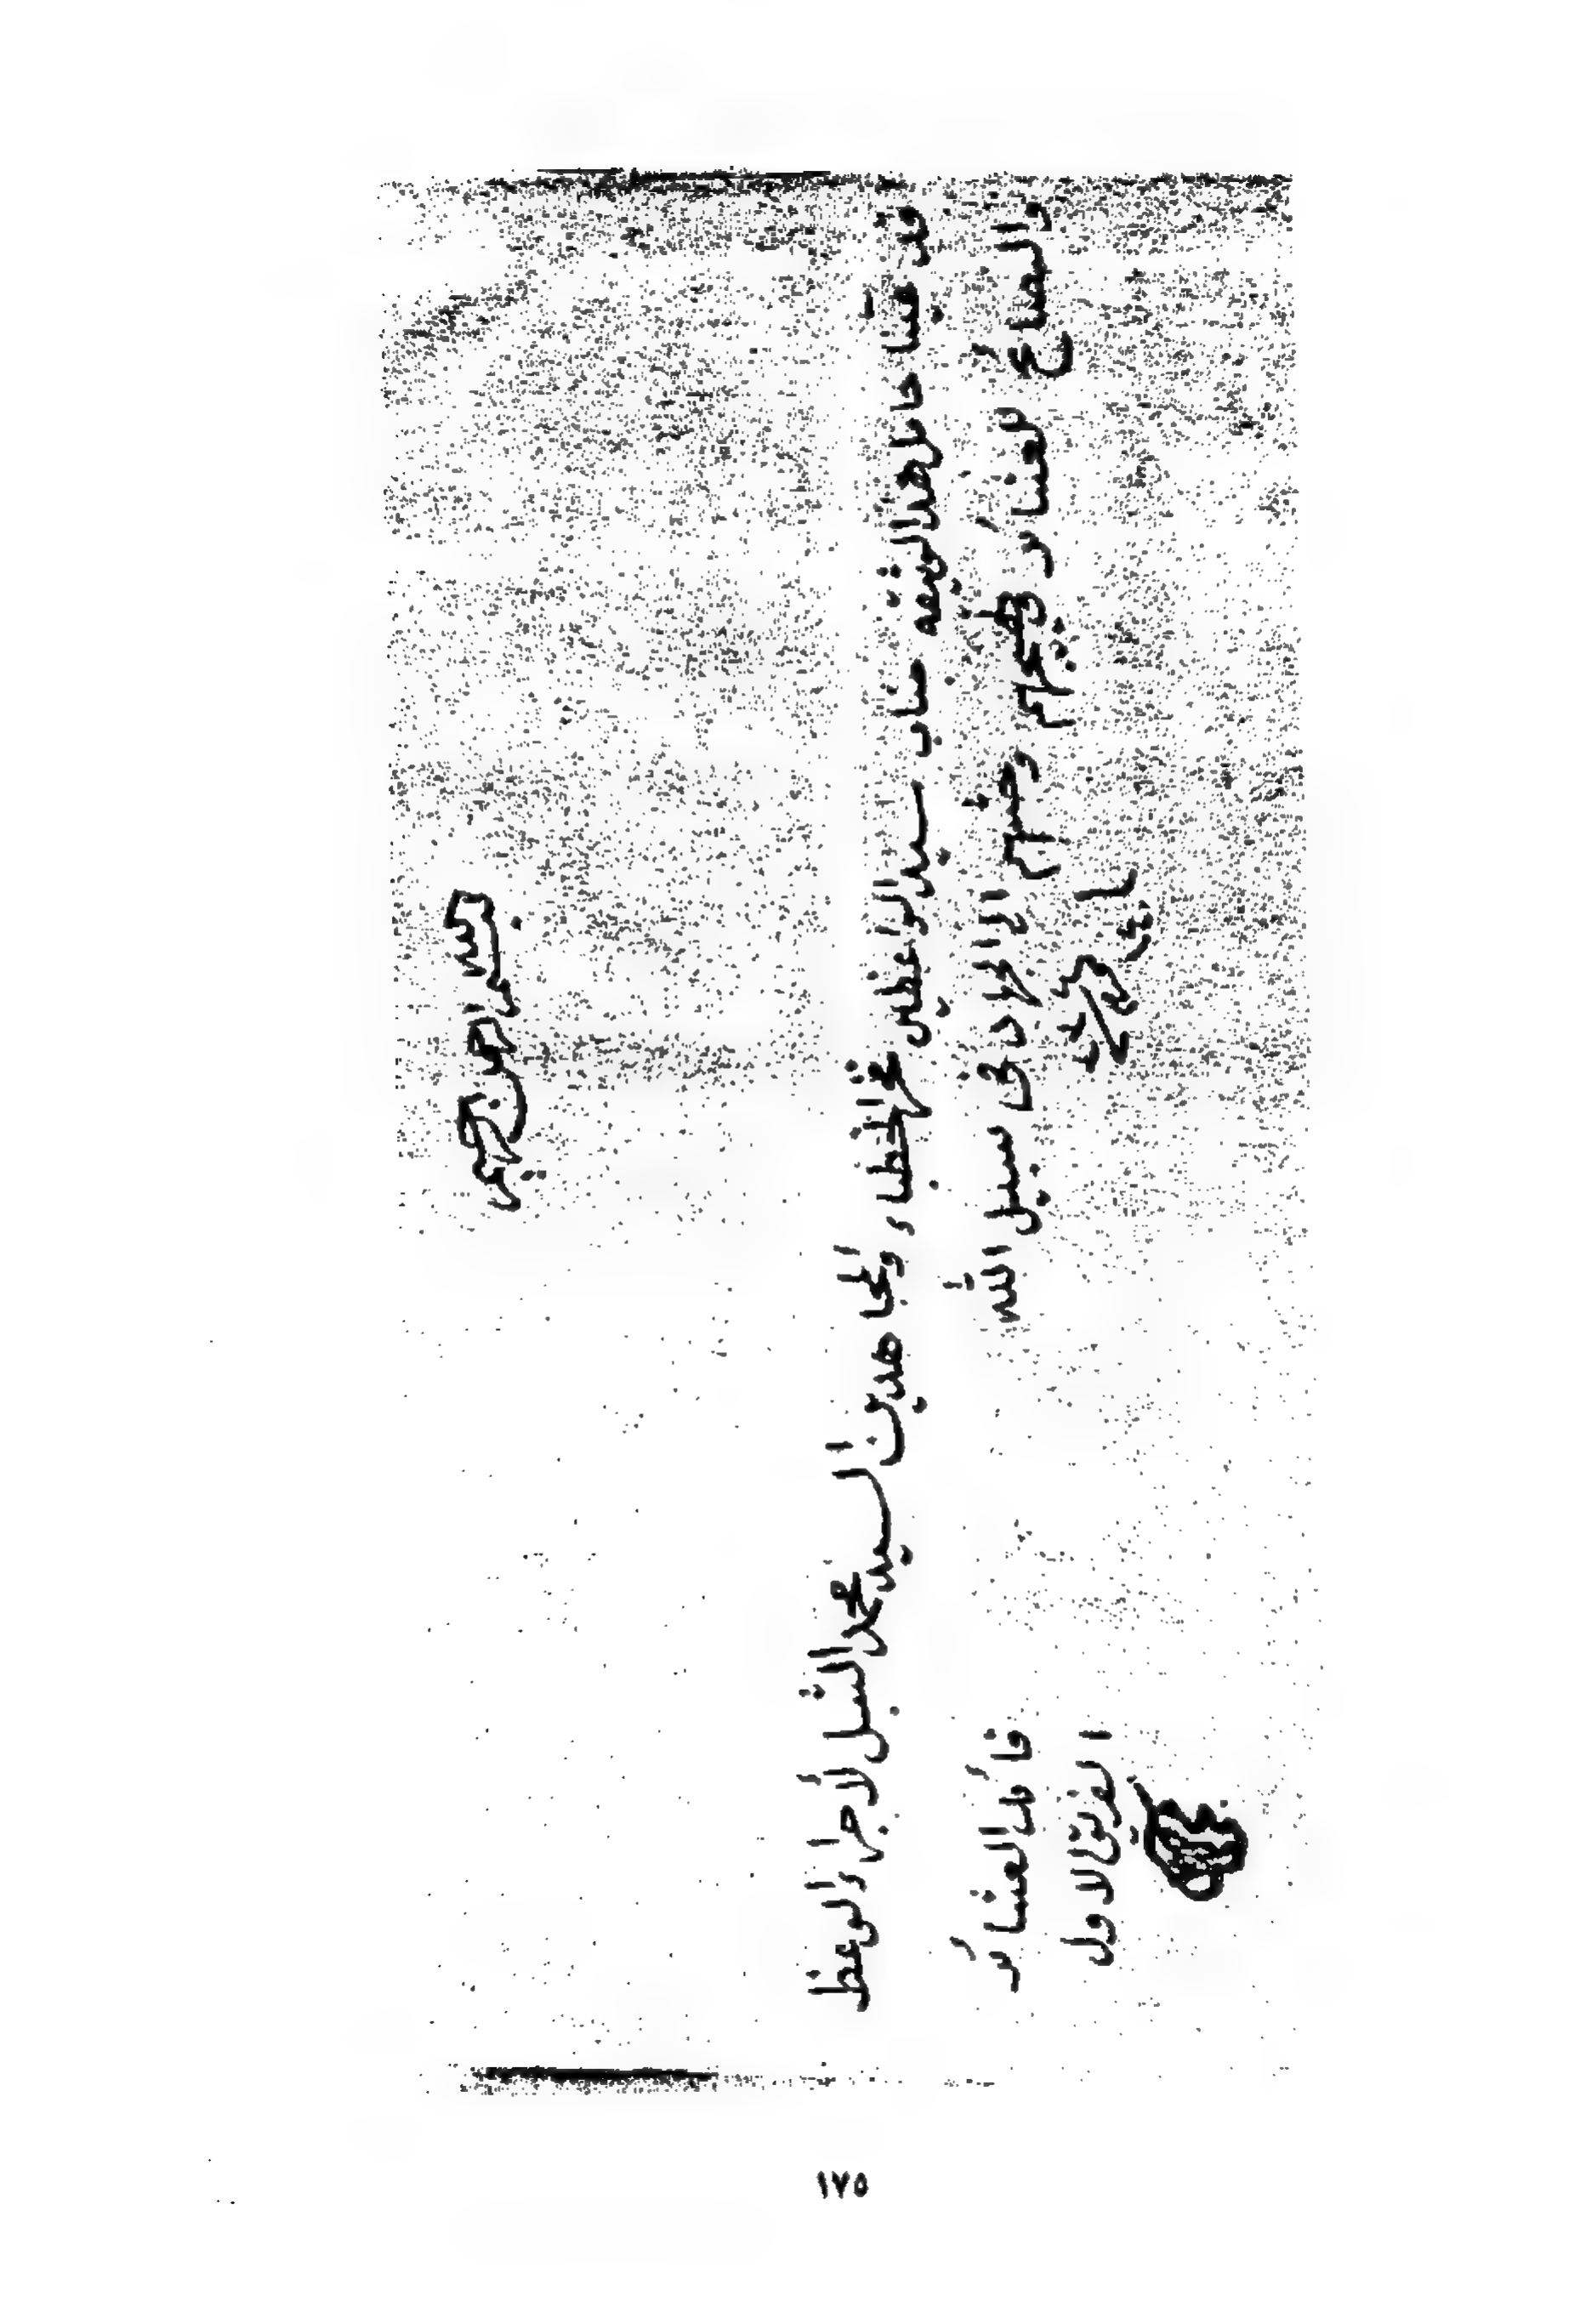 بسم الله الرحمن الرحيم
قد عينا حامل هذا الوثيقه جناب سيد الواعظين فخر الخطباء والمجاهدين السيد محمد الشبل لأجراء الوعظ
والنصائح للعشائر وتهييجهم وحثهم الى الجهاد في سبيل الله
قائد العشائر
الفريق الاول
١٧٥